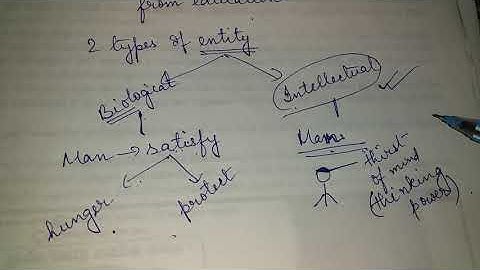 from education
2 types of entity
Biological
Intellectual
Man → satisfy
hunger
protect
Man
thirst
of mind
(thinking
power)